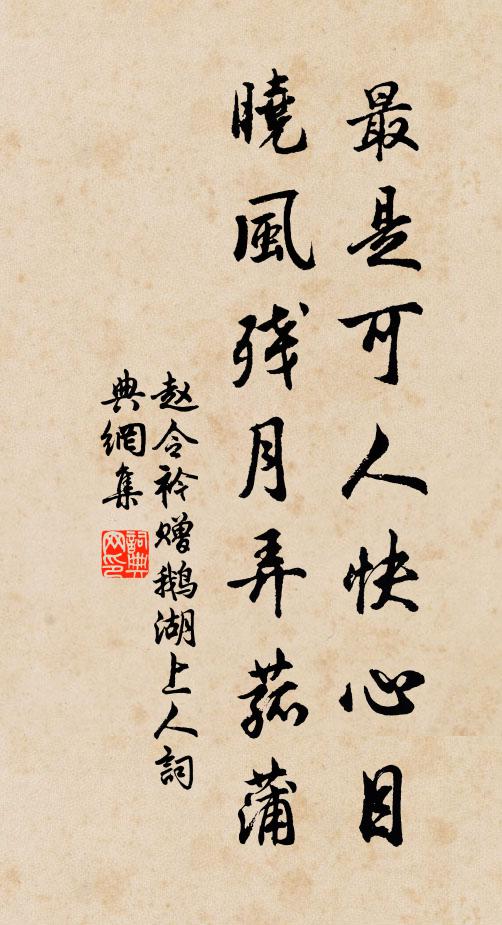 最是可人快心目
曉風残月弄菰蒲
赵令衿赠鹅湖上人詞
典網集
詞典
网印